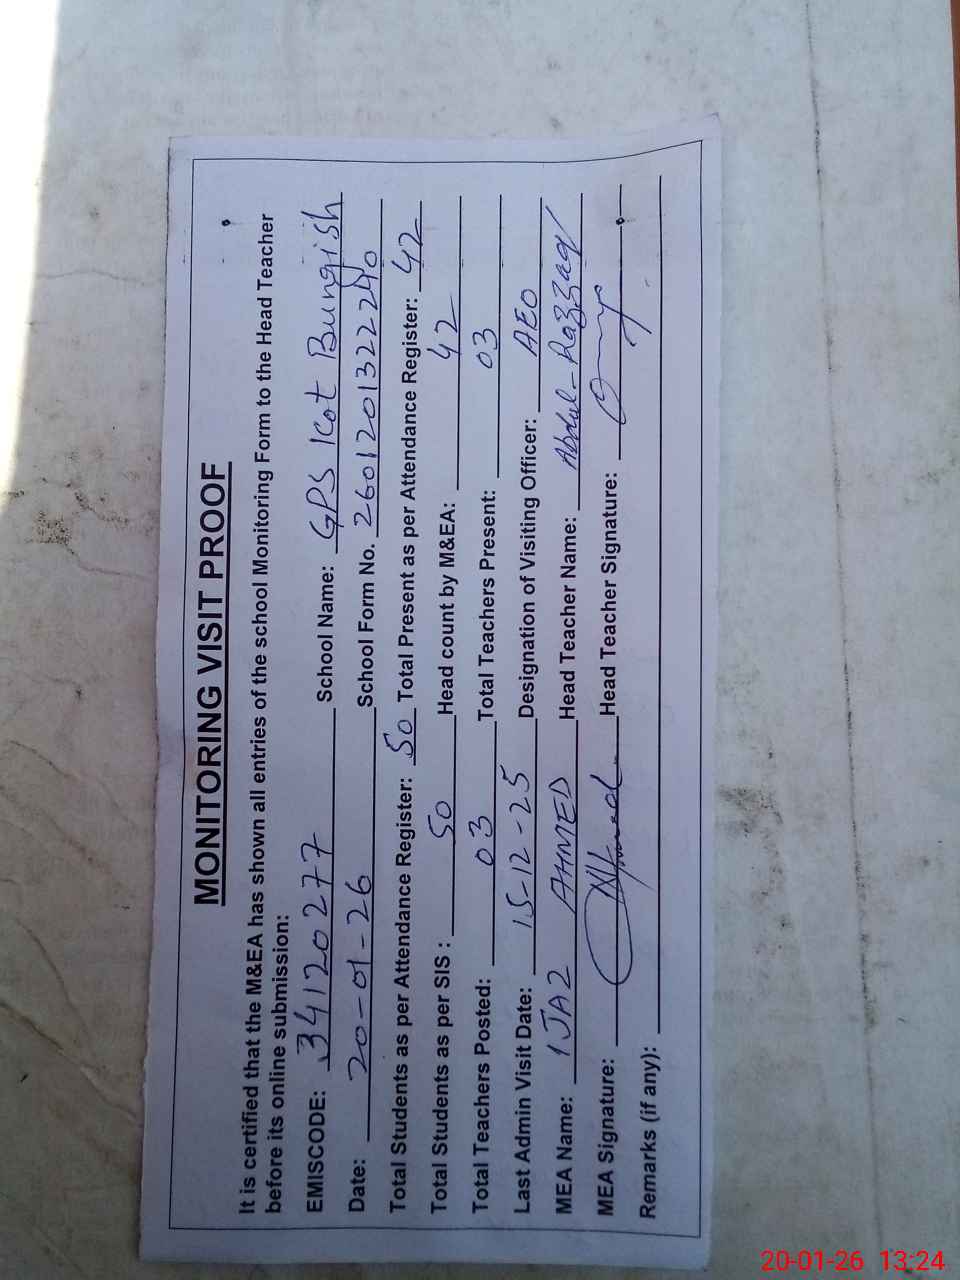 MONITORING VISIT PROOF
It is certified that the M&EA has shown all entries of the school Monitoring Form to the Head Teacher
before its online submission:
EMISCODE: 34120277 School Name: GPS Kot Bungish
Date: 20-01-26 School Form No. 2601201322240
Total Students as per Attendance Register: 50 Total Present as per Attendance Register: 42
Total Students as per SIS : 50 Head count by M&EA: 42
Total Teachers Posted: 03 Total Teachers Present: 03
Last Admin Visit Date: 15-12-25 Designation of Visiting Officer: AEO
MEA Name: IJAZ AHMED Head Teacher Name: Abdul-Razzaq
MEA Signature: Head Teacher Signature:
Remarks (if any):
20-01-26 13:24